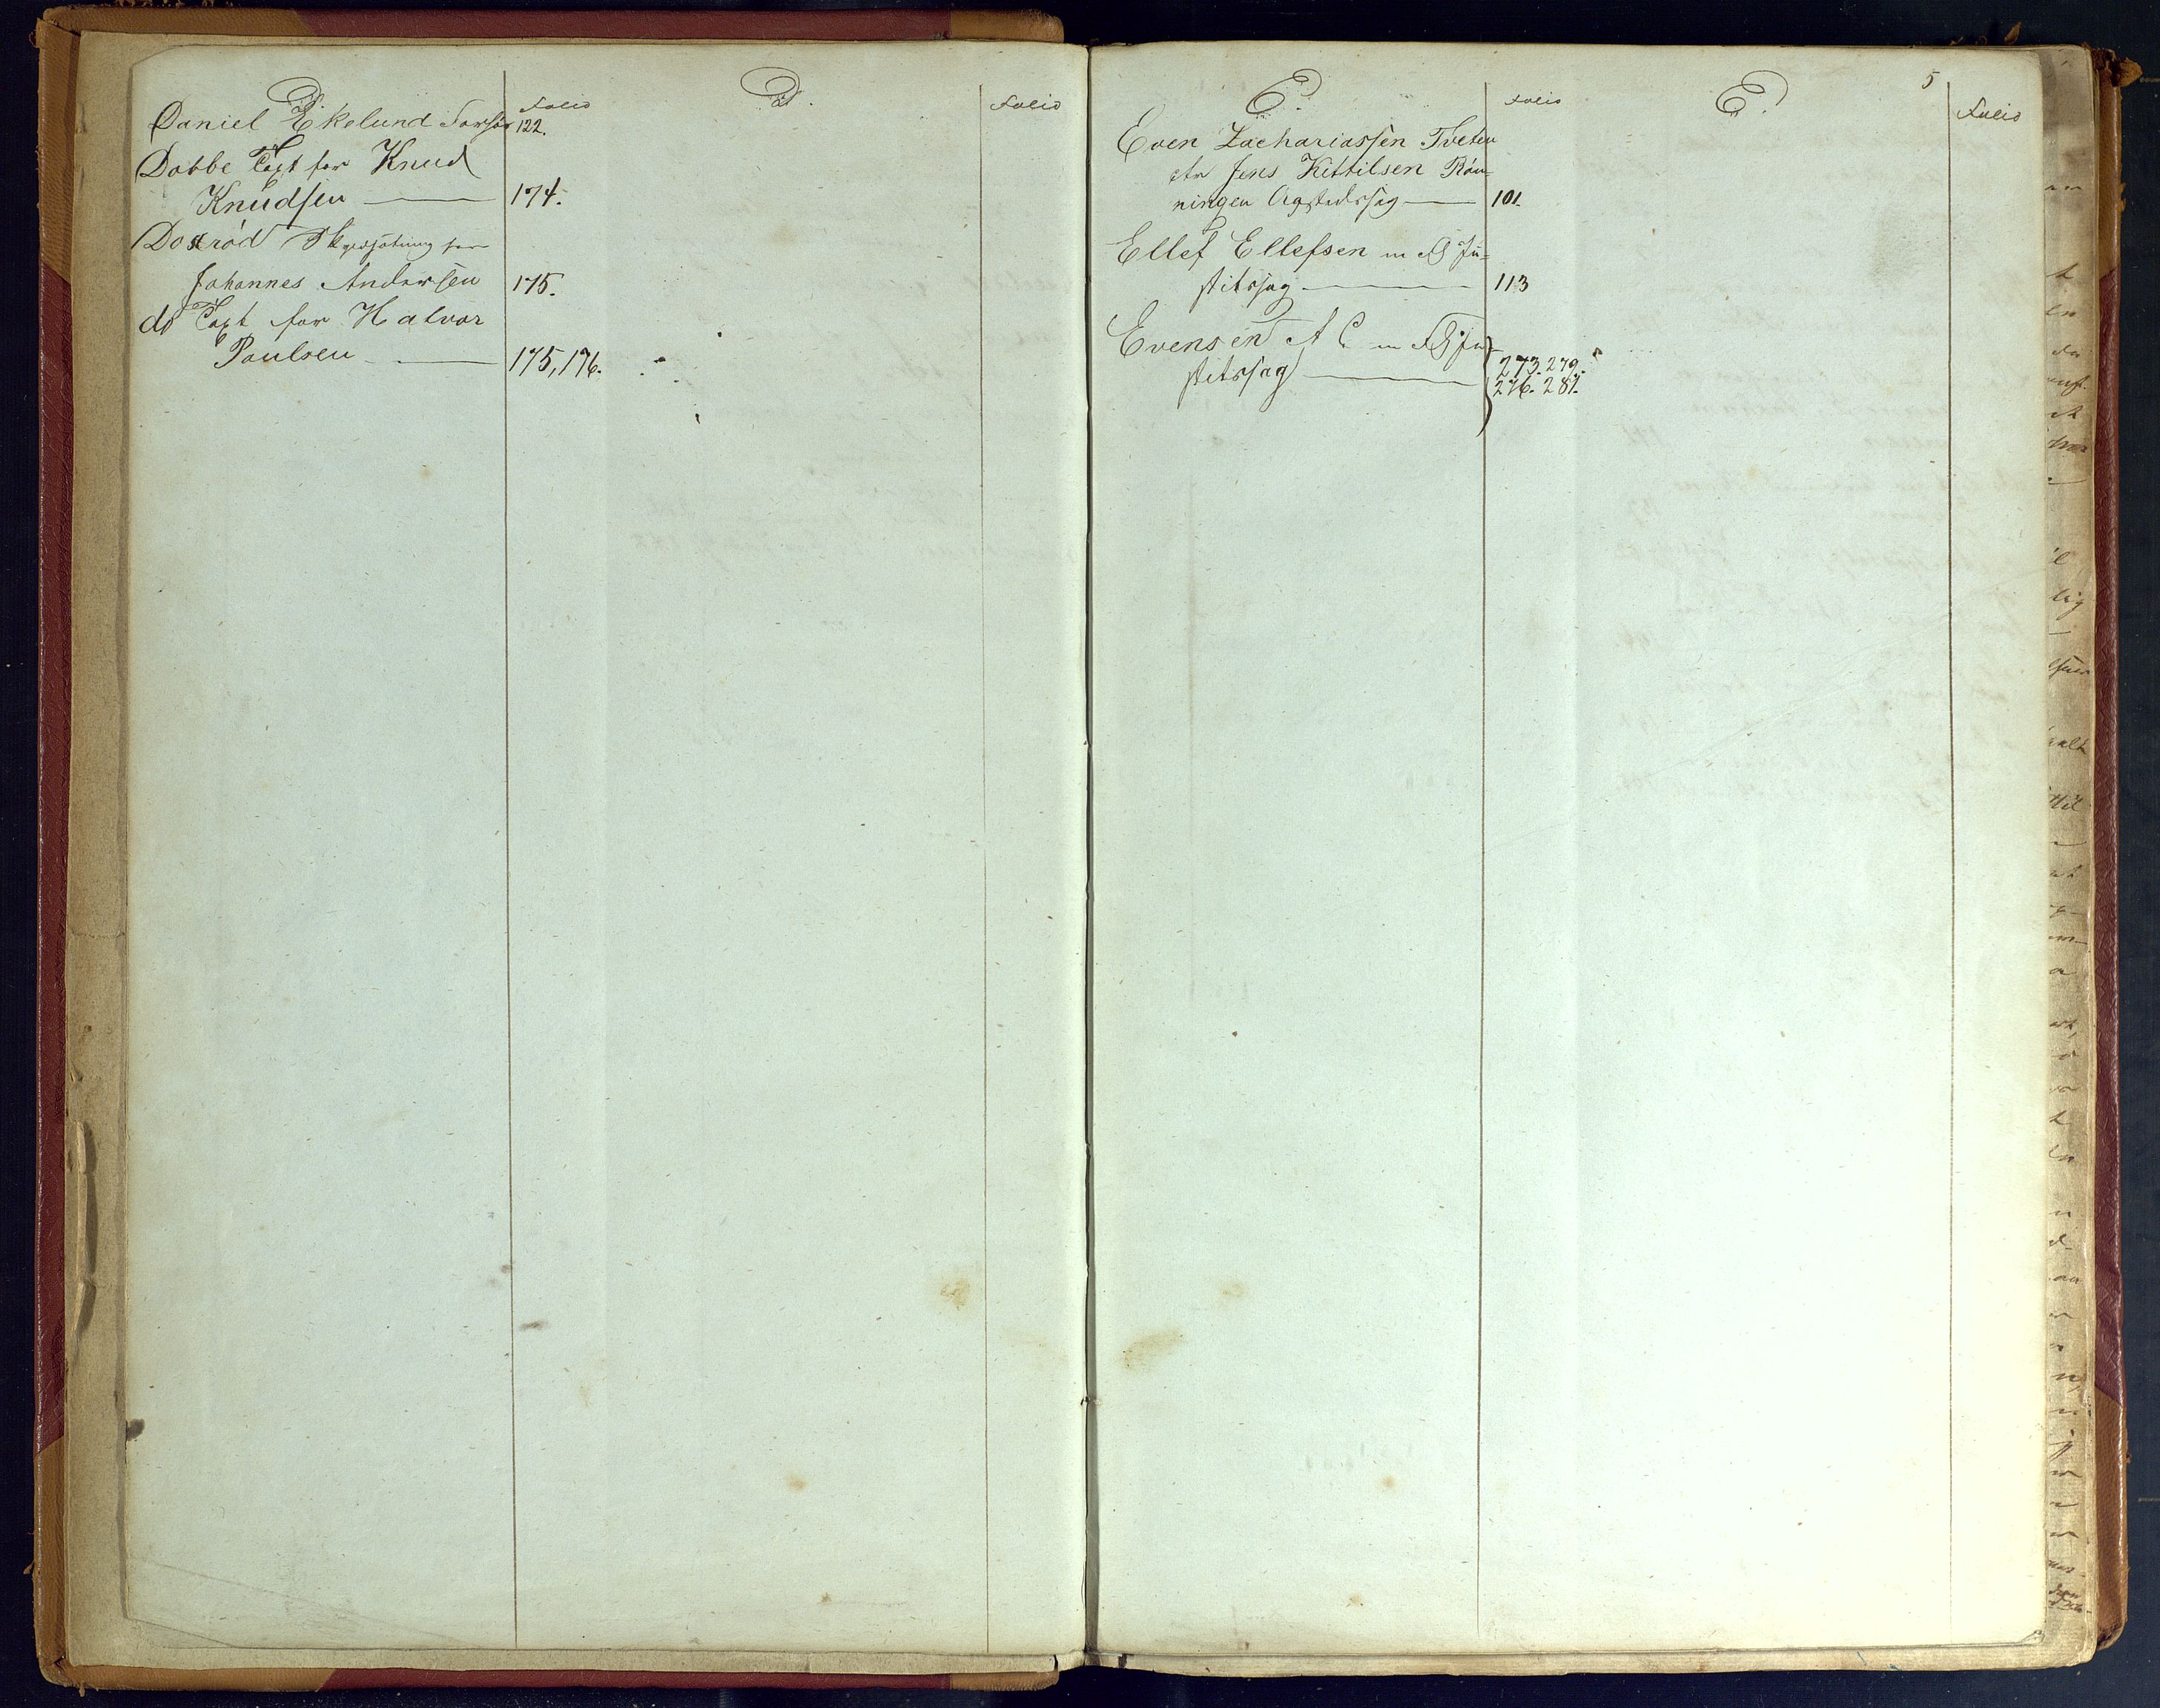 D.
Folio
Daniel Ekelund Forhør 122.
Dobbe Taxt for Knud
Knudsen — 174.
Dosrød Skyldsætning for
Johannes Andersen 175.
do Taxt for Halvor
Paulsen — 175, 176.
D.
Folio
E.
Folio
Even Zachariassen Tveten
ctr Jens Kittilsen Røn-
ningen Ågstedssag — 101.
Ellef Ellefsen m Fl Ju-
stitssag — 113
Evensen A C m Fl Ju-
stitssag — 273. 279.
276. 281.
E.
5
Folio